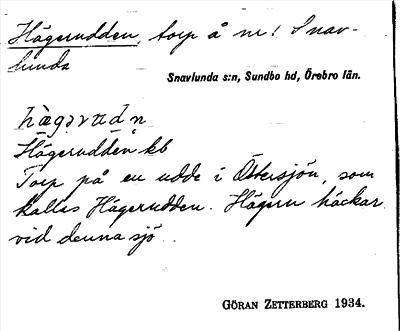 Hägerudden, torp å nr 1 Snav-
lunda
Snavlunda s:n, Sundbo hd, Örebro län.
hägerudden kb
Torp på en udde i Östersjön, som
kallas Hägerudden. Hägern häckar
vid denna sjö.
GÖRAN ZETTERBERG 1934.